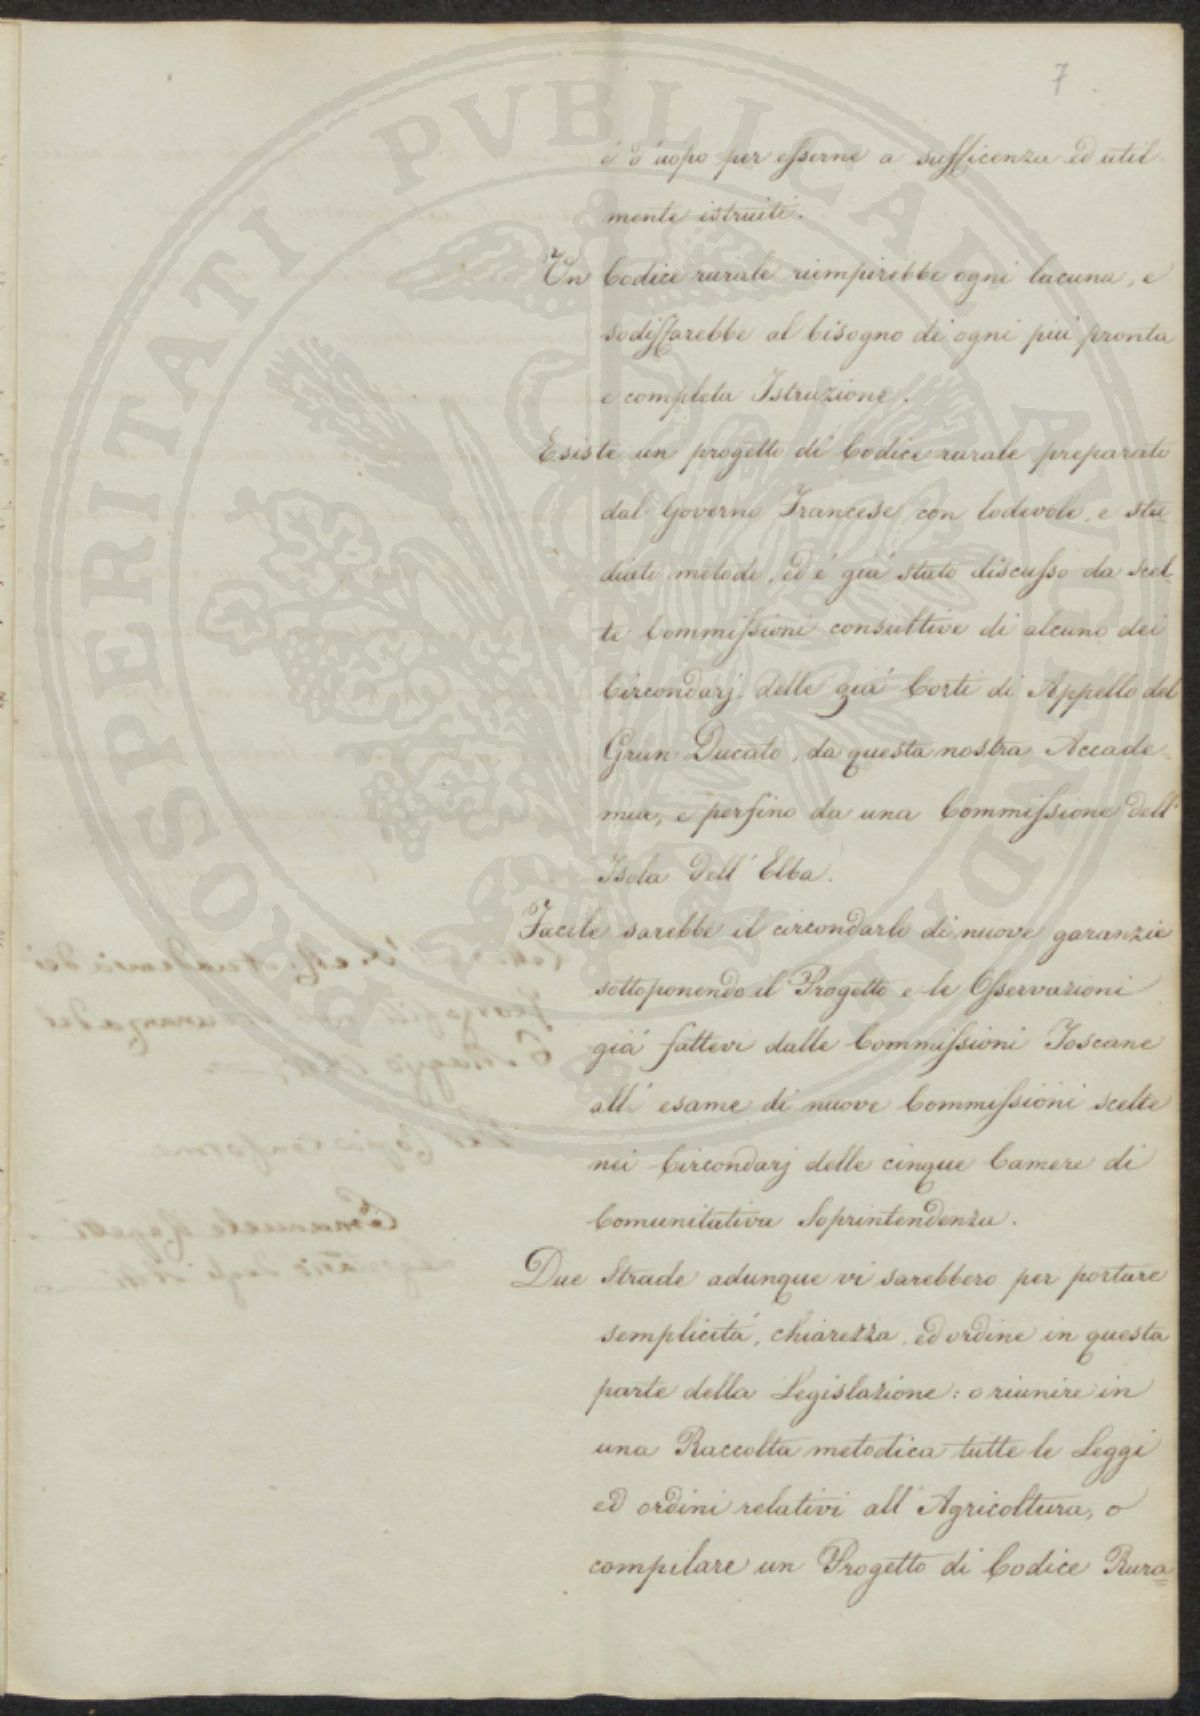 7
é d'uopo per esserne a sufficenza ed util
mente istruiti.
Un Codice rurale riempirebbe ogni lacuna, e
sodisfarebbe al bisogno di ogni piu pronta
e completa Istruzione.
Esiste un progetto di Codice rurale preparato
dal Governo Francese con lodevole, e stu-
diato metodo, ed é giá stato discusso da scel-
te Commissioni consultive di alcuno dei
Circondarj delle giá Corti di Appello del
Gran Ducato, da questa nostra Accade-
mia, e perfino da una Commissione dell'
Isola dell' Elba.
Facile sarebbe il circondarlo di nuove garanzie
sottoponendo il Progetto e le Osservazioni
giá fattevi dalle Commissioni Toscane
all' esame di nuove Commissioni scelte
nei Circondarj delle cinque Camere di
Comunitativa Soprintendenza.
Due Strade adunque vi sarebbero per portare
semplicitá, chiarezza, ed ordine in questa
parte della Legislazione: o riunire in
una Raccolta metodica tutte le Leggi
ed ordini relativi all' Agricoltura, o
compilare un Progetto di Codice Rura=
PROSPERITATI PVBLICAE AVGENDAE